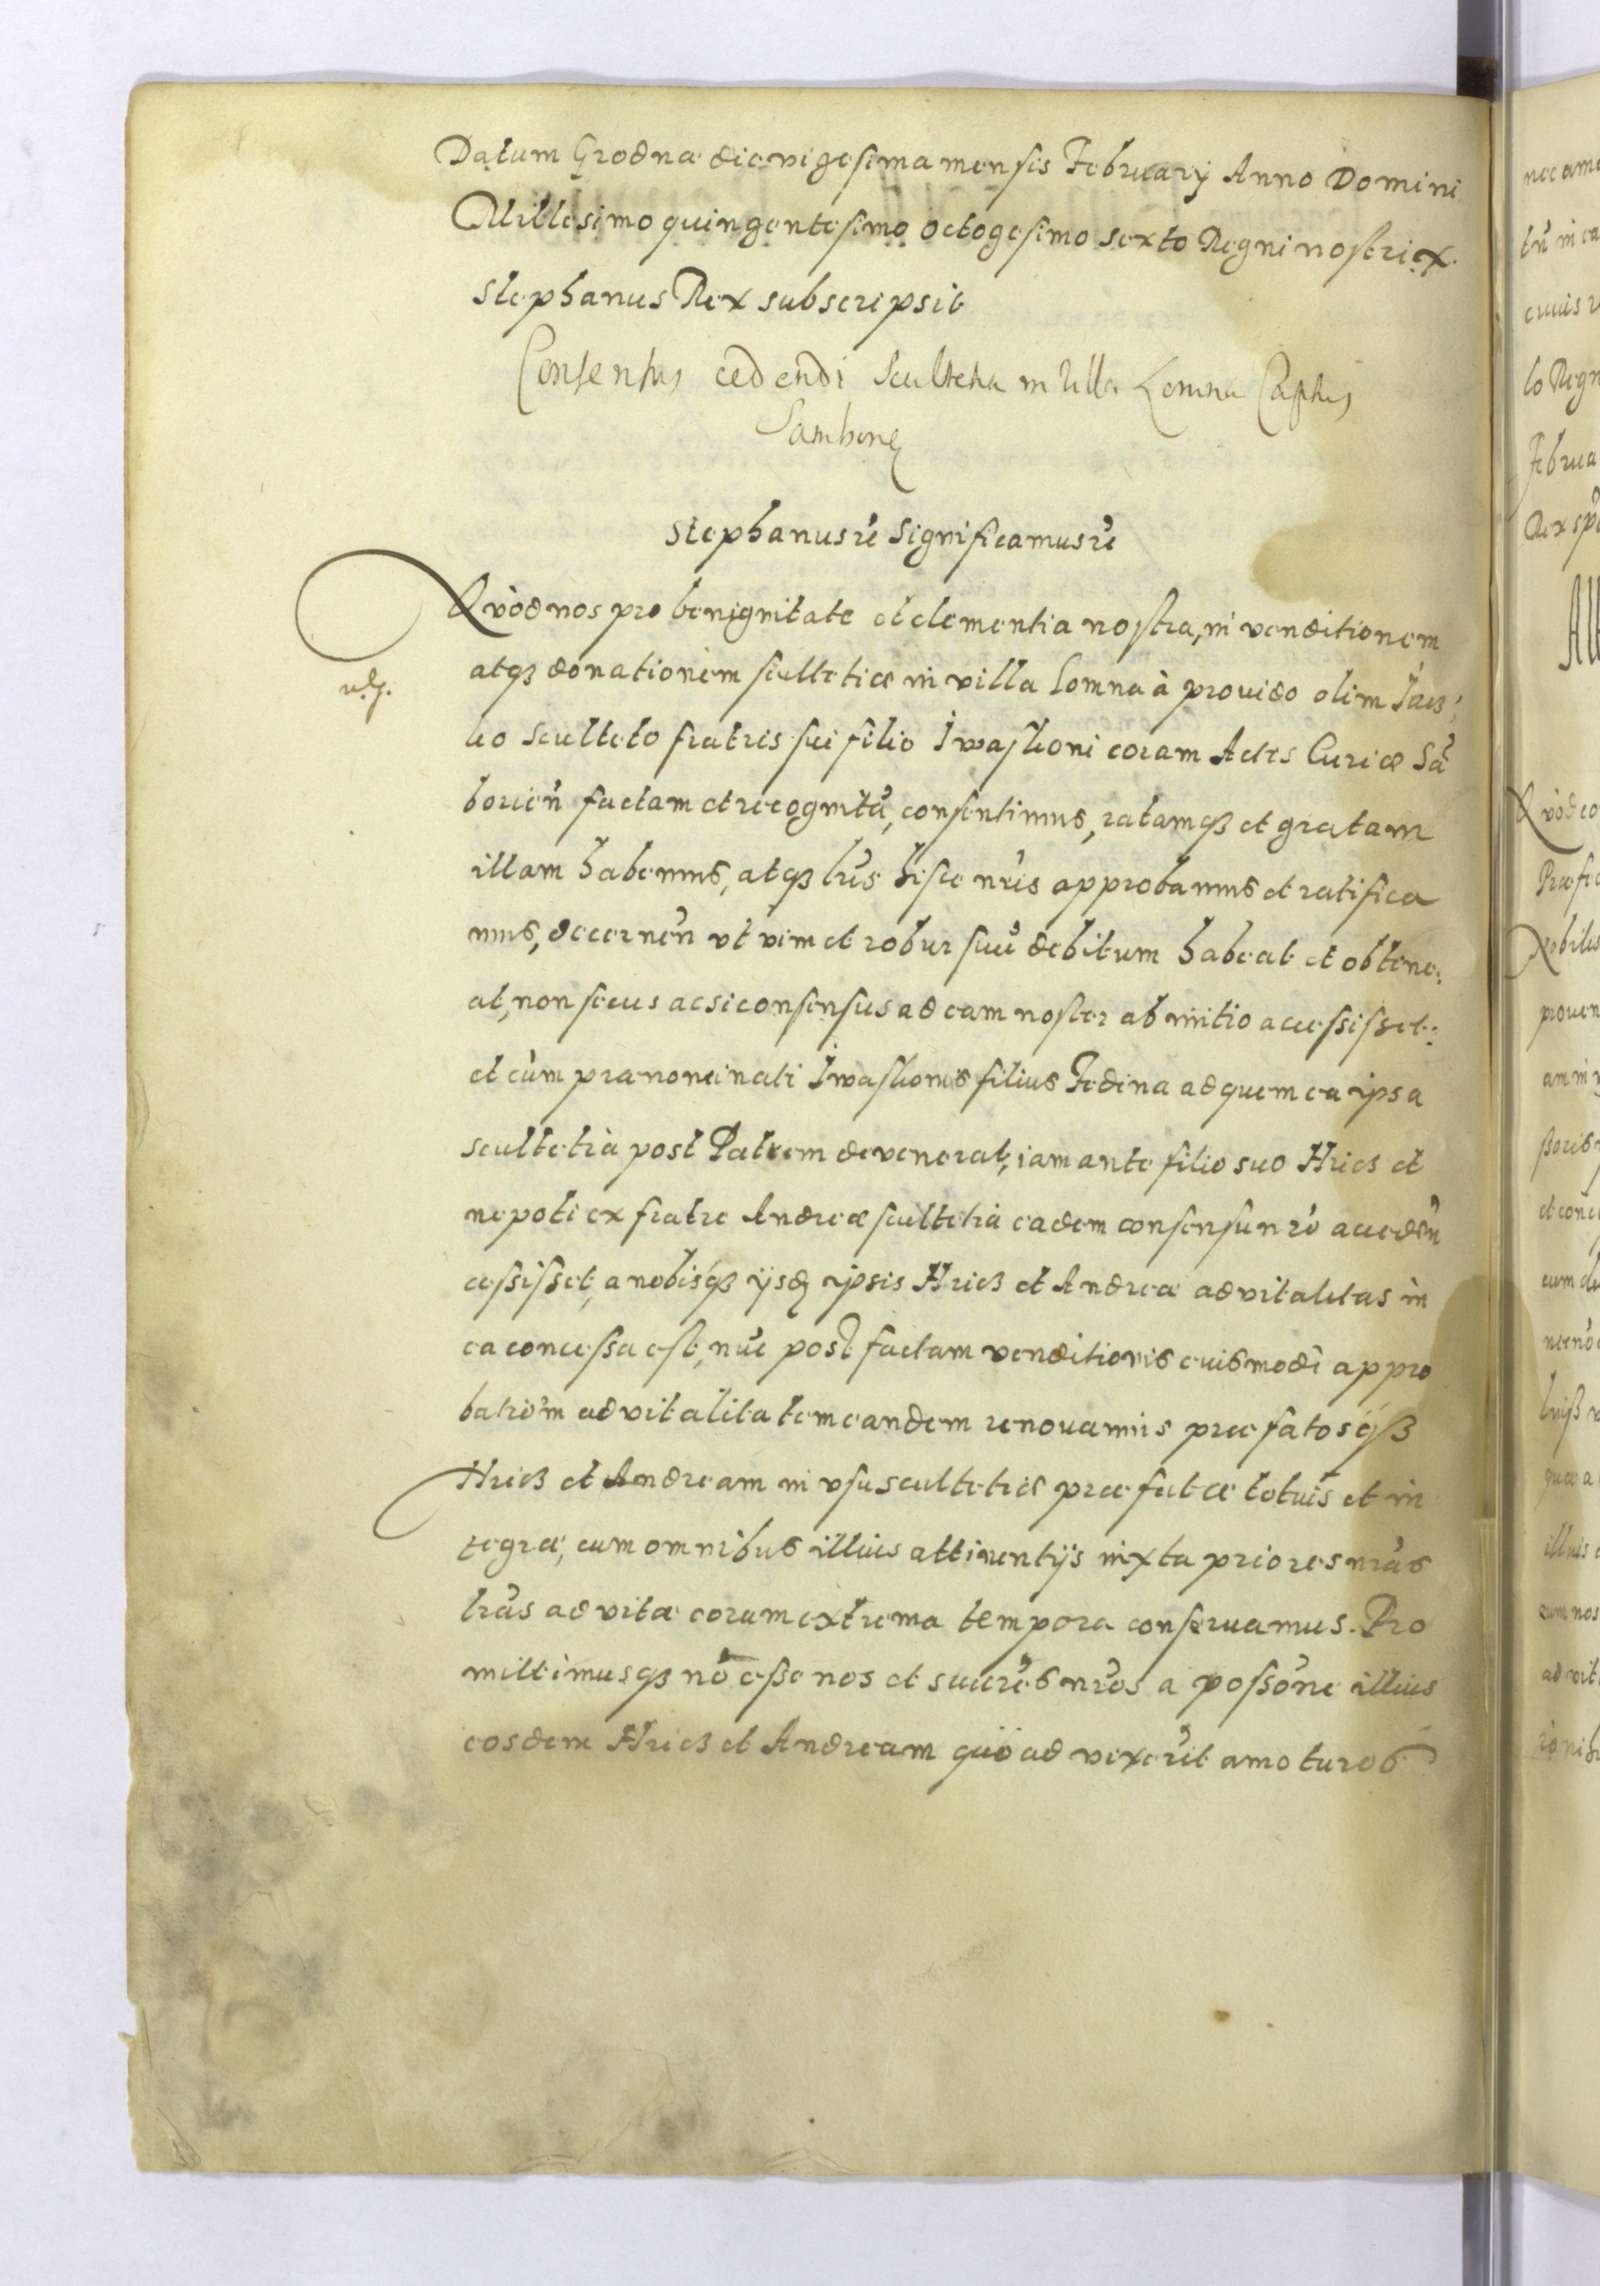 Datum Grodnæ die vigesima mensis February Anno Domini
Millesimo quingentesimo octogesimo sexto Regni nostri x.
Stephanus Rex subscripsit
Consensus cedendi Scultetia in Villa Lomna Captus
Samborien
Stephanus rē Significamus rē
Quòd nos pro benignitate et clementia nostra, in venditionem
atq3 donationem scultetiæ in villa Lomna à prouido olim
ko Sculteto fratris sui filio Iwaskoni coram Actis Curiæ Sā
borieñ factam et recognitā, consentimus, ratamq3 et gratam
illam habemus, atq3 lr̃is hisce nr̃is approbamus et ratifica
mus, decerneñ vt vim et robur suū debitum habeat et obtine:
at, non secus ac si consensus ad eam noster ab initio accessisset:
et cùm prænominati Iwaskonis filius Fedina ad quem ea ipsa
scultetia post Patrem devenerat, iam ante filio suo Hricz et
nepoti ex fratre Andreæ scultetia eadem consensu nr̃o accedeñ
cessisset, a nobisq3 ijsdē ipsis Hricz et Andreæ advitalitas in
ea concessa est, nūc post factam venditionis euismodi appro
batioēm advitalitatem eandem renouamus præfatosq3
Hricz et Andream in vsu scultetiæ præfatæ totius et in
tegræ, cum omnibus illius attinentijs iuxta priores nr̃as
lr̃as ad vitæ eorum extrema tempora conseruamus. Pro
mittimusq3 nō esse nos et succr̃es nr̃os a possōne illius
eosdem Hricz et Andream quoad vixerīt amoturos